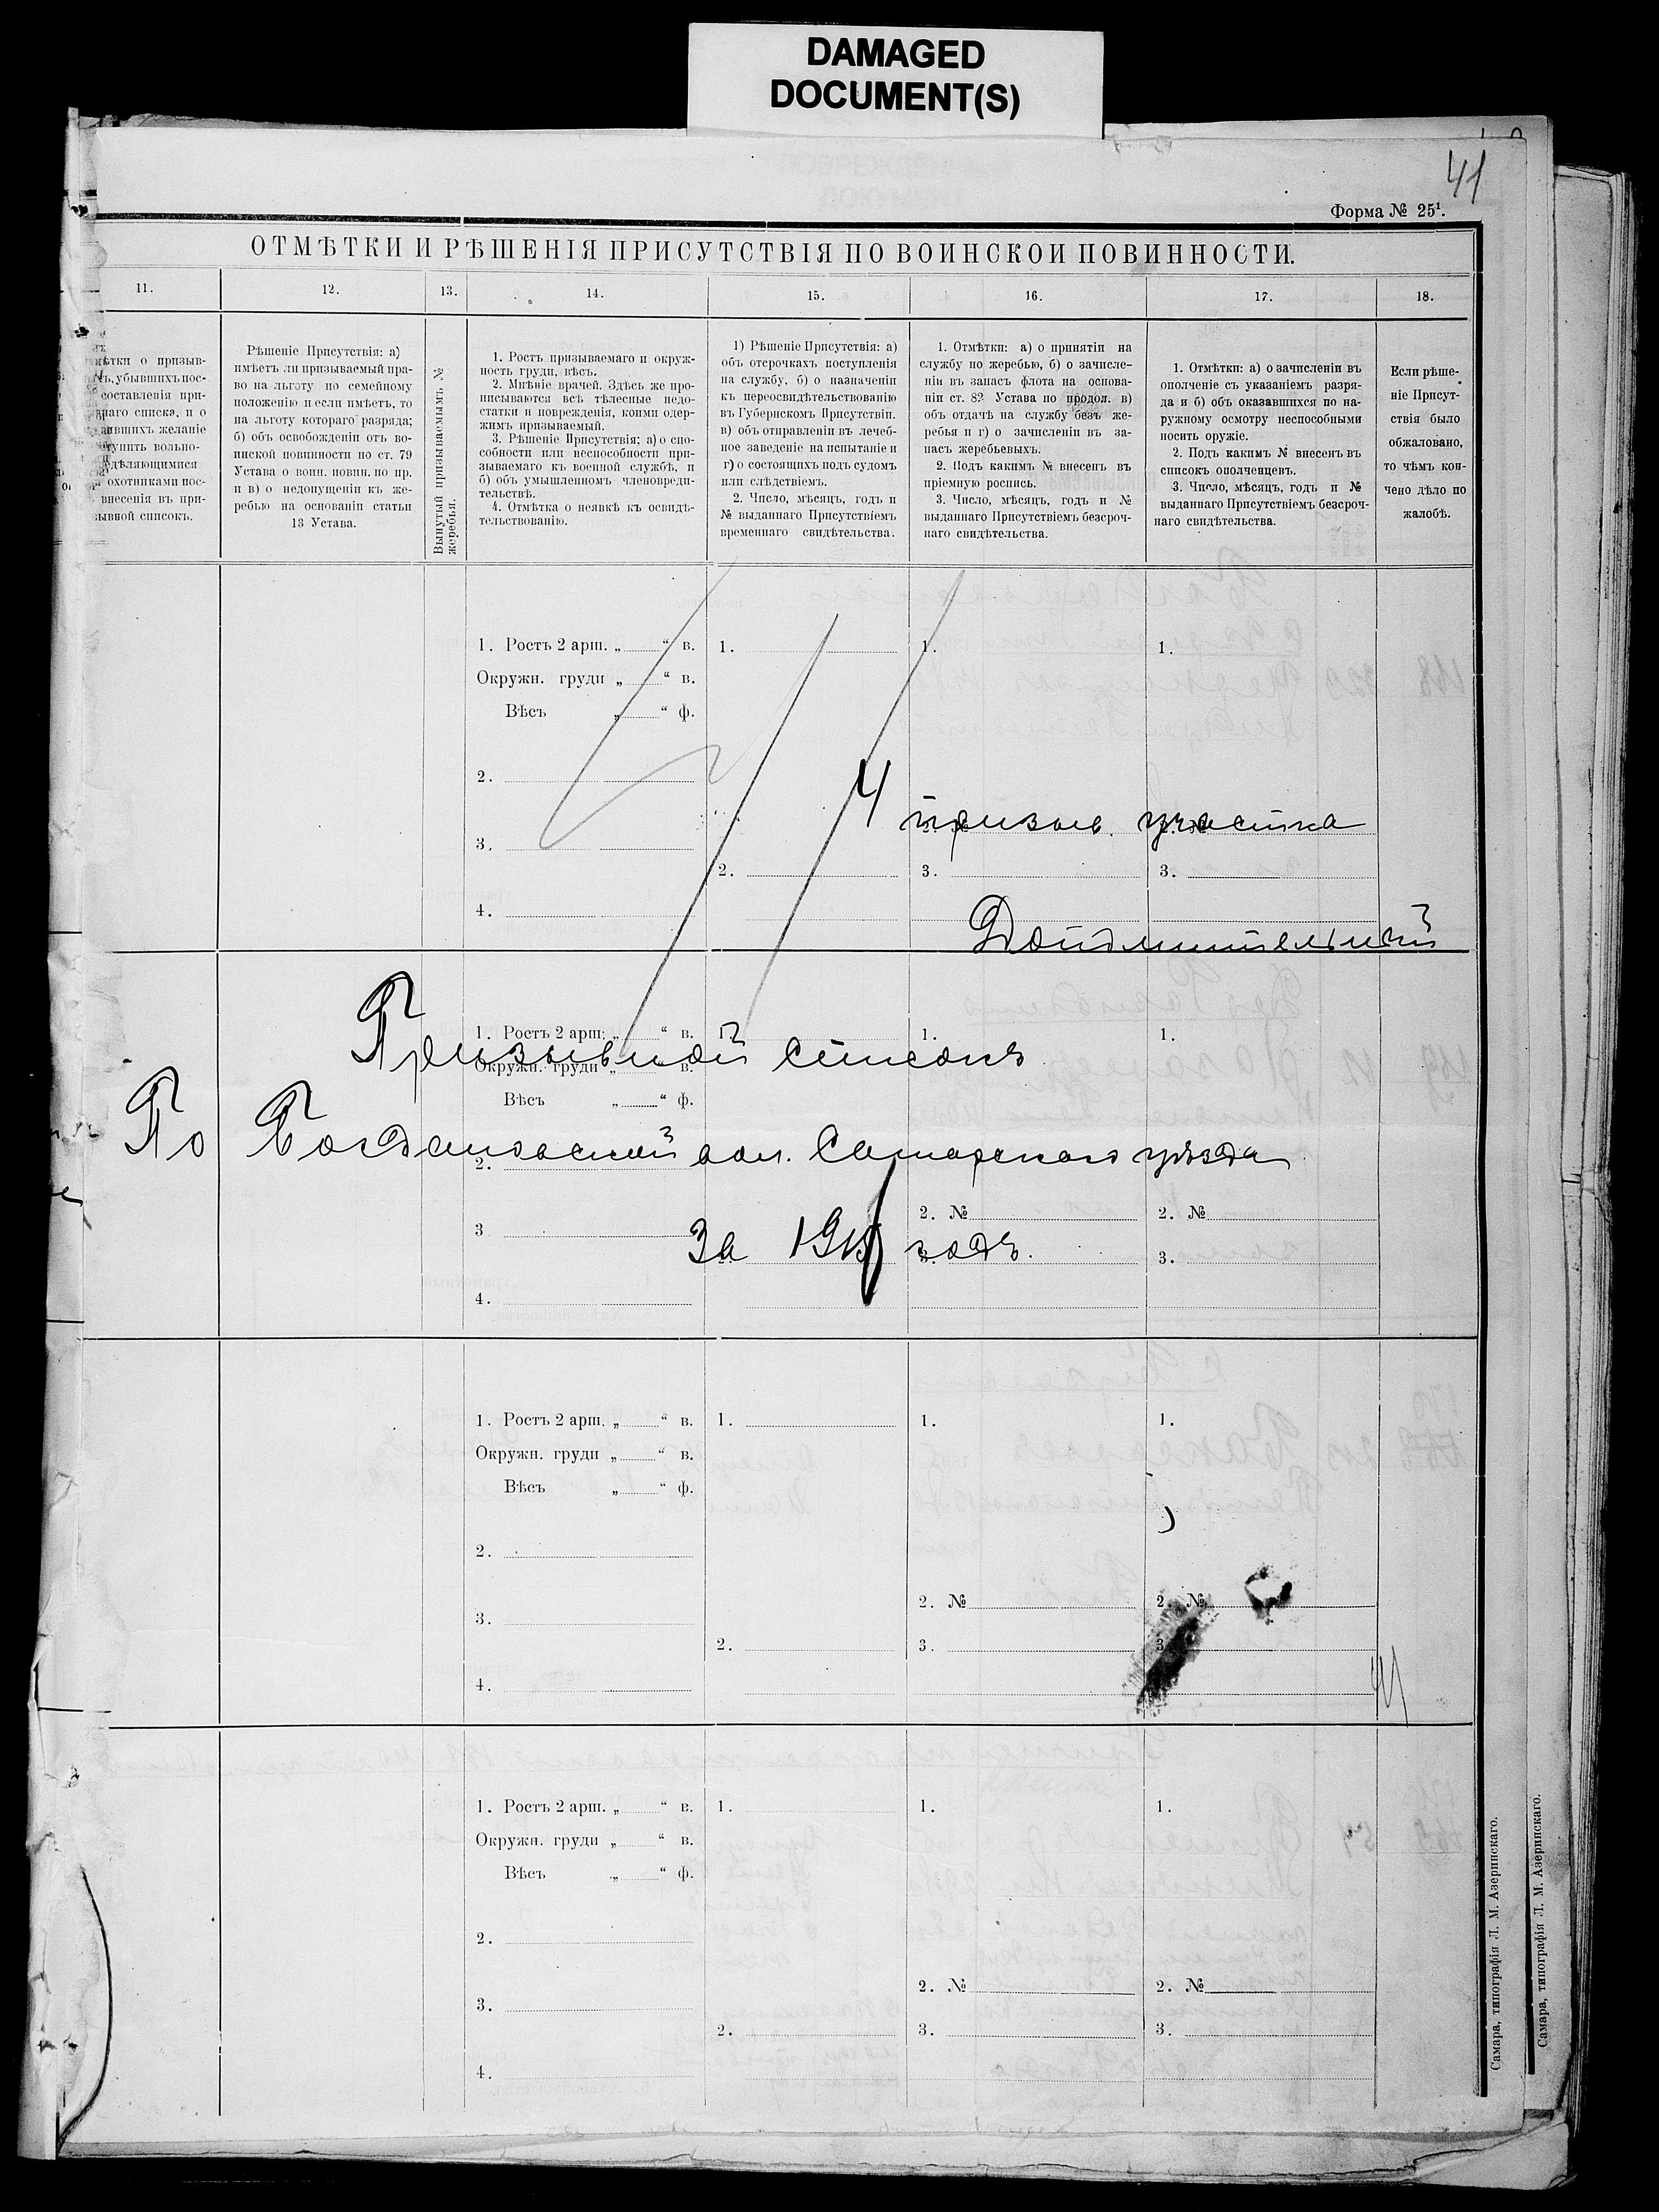 DAMAGED
DOCUMENT(S)
41
Форма № 25¹.
ОТМѢТКИ И РѢШЕНІЯ ПРИСУТСТВІЯ ПО ВОИНСКОЙ ПОВИННОСТИ.
11. 12. 13. 14. 15. 16. 17. 18.
о призыв-
убывшихъ пос-
составленія при-
списка, и о
желаніе
вольно-
охотниками пос-
внесенія въ при-
списокъ.
Рѣшеніе Присутствія: а)
имѣетъ ли призываемый пра-
во на льготу по семейному
положенію и если имѣетъ, то
на льготу котораго разряда;
б) объ освобожденіи отъ во-
инской повинности по ст. 79
Устава о воин. повин. по пр.
и в) о недопущеніи къ же-
ребью на основаніи статьи
13 Устава.
Вынутый призываемымъ №
жеребья.
1. Ростъ призываемаго и окруж-
ность груди, вѣсъ.
2. Мнѣніе врачей. Здѣсь же про-
писываются всѣ тѣлесные недо-
статки и поврежденія, коими одер-
жимъ призываемый.
3. Рѣшеніе Присутствія: а) о спо-
собности или неспособности при-
зываемаго къ военной службѣ, и
б) объ умышленномъ членовреди-
тельствѣ.
4. Отмѣтка о неявкѣ къ освидѣ-
тельствованію.
1) Рѣшеніе Присутствія: а)
объ отсрочкахъ поступленія
на службу, б) о назначеніи
къ переосвидѣтельствованію
въ Губернскомъ Присутствіи.
в) объ отправленіи въ лечеб-
ное заведеніе на испытаніе и
г) о состоящихъ подъ судомъ
или слѣдствіемъ.
2. Число, мѣсяцъ, годъ и
№ выданнаго Присутствіемъ
временнаго свидѣтельства.
1. Отмѣтки: а) о принятіи на
службу по жеребью, б) о зачисле-
ніи въ запасъ флота на основа-
ніи ст. 82 Устава по продол. в)
объ отдачѣ на службу безъ же-
ребья и г) о зачисленіи въ за-
пасъ жеребьевыхъ.
2. Подъ какимъ № внесенъ въ
пріемную роспись.
3. Число, мѣсяцъ, годъ и №
выданнаго Присутствіемъ безсроч-
наго свидѣтельства.
1. Отмѣтки: а) о зачисленіи въ
ополченіе съ указаніемъ разря-
да и б) объ оказавшихся по на-
ружному осмотру неспособными
носить оружіе.
2. Подъ какимъ № внесенъ въ
списокъ ополченцевъ.
3. Число, мѣсяцъ, годъ и №
выданнаго Присутствіемъ безсроч-
наго свидѣтельства.
Если рѣше-
ніе Присут-
ствія было
обжаловано,
то чѣмъ кон-
чено дѣло по
жалобѣ.
1. Ростъ 2 арш. „ “ в. 1. 1. 1.
Окружн. груди „ “ в.
Вѣсъ „ “ ф.
2.
4 призыв. участка
3.
2. 3. 3.
4.
Дополнительный
1. Ростъ 2 арш. „ “ в. 1. 1.
Призывной списокъ
Окружн. груди „ в.
Вѣсъ „ “ ф.
По Богдановской вол. Самарскаго уѣзда
2.
2. № 2. №
3
За 191 годъ.
3.
4.
1. Ростъ 2 арш. „ “ в. 1. 1. 1.
Окружн. груди „ “ в.
Вѣсъ „ “ ф.
2.
2. № 2. №
3.
2. 3. 3
4.
41
1. Ростъ 2 арш. „ “ в. 1. 1. 1.
Окружн. груди „ “ в.
Вѣсъ „ “ ф.
2.
2. № 2. №
3.
2. 3. 3.
4.
Самара, типографія Л. М. Азеринскаго.
Самара, типографія Л. М. Азеринскаго.